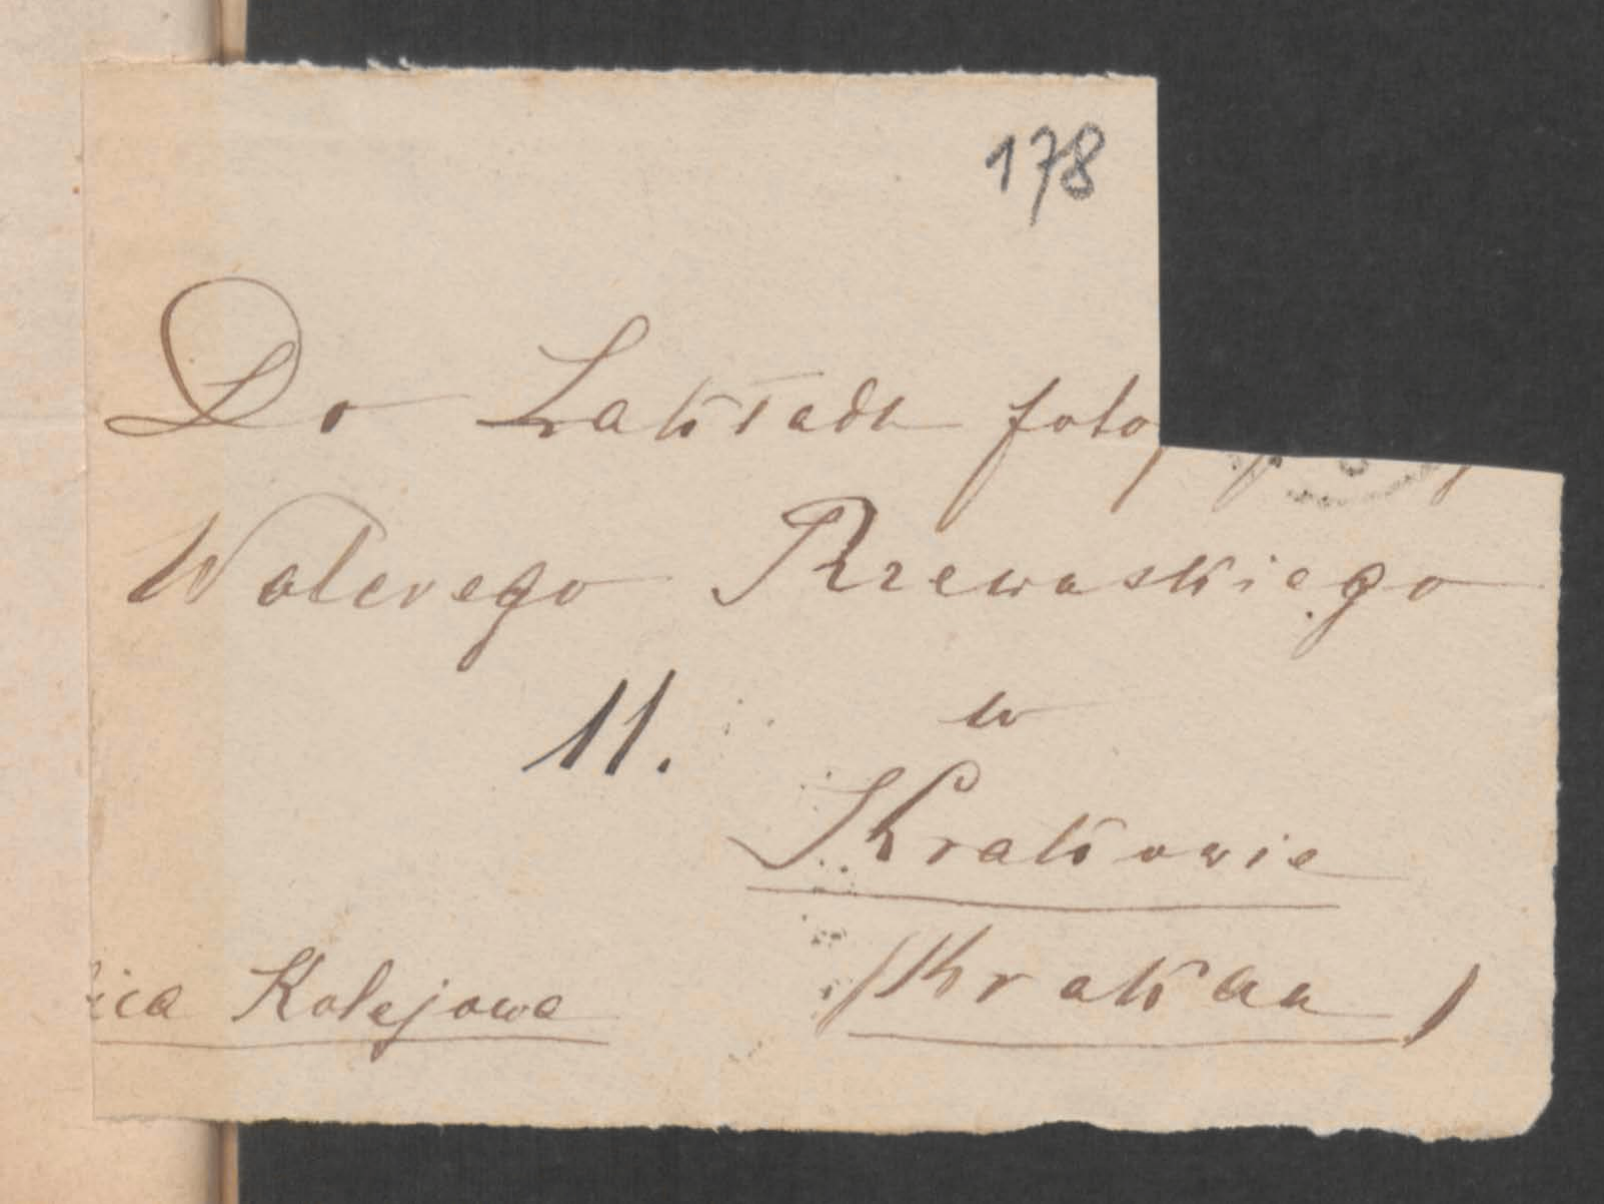 178
Do Zakładu foto
Walerego Rzewuskiego
11.
w
Krakowie
ica Kolejowa
(Krakau)